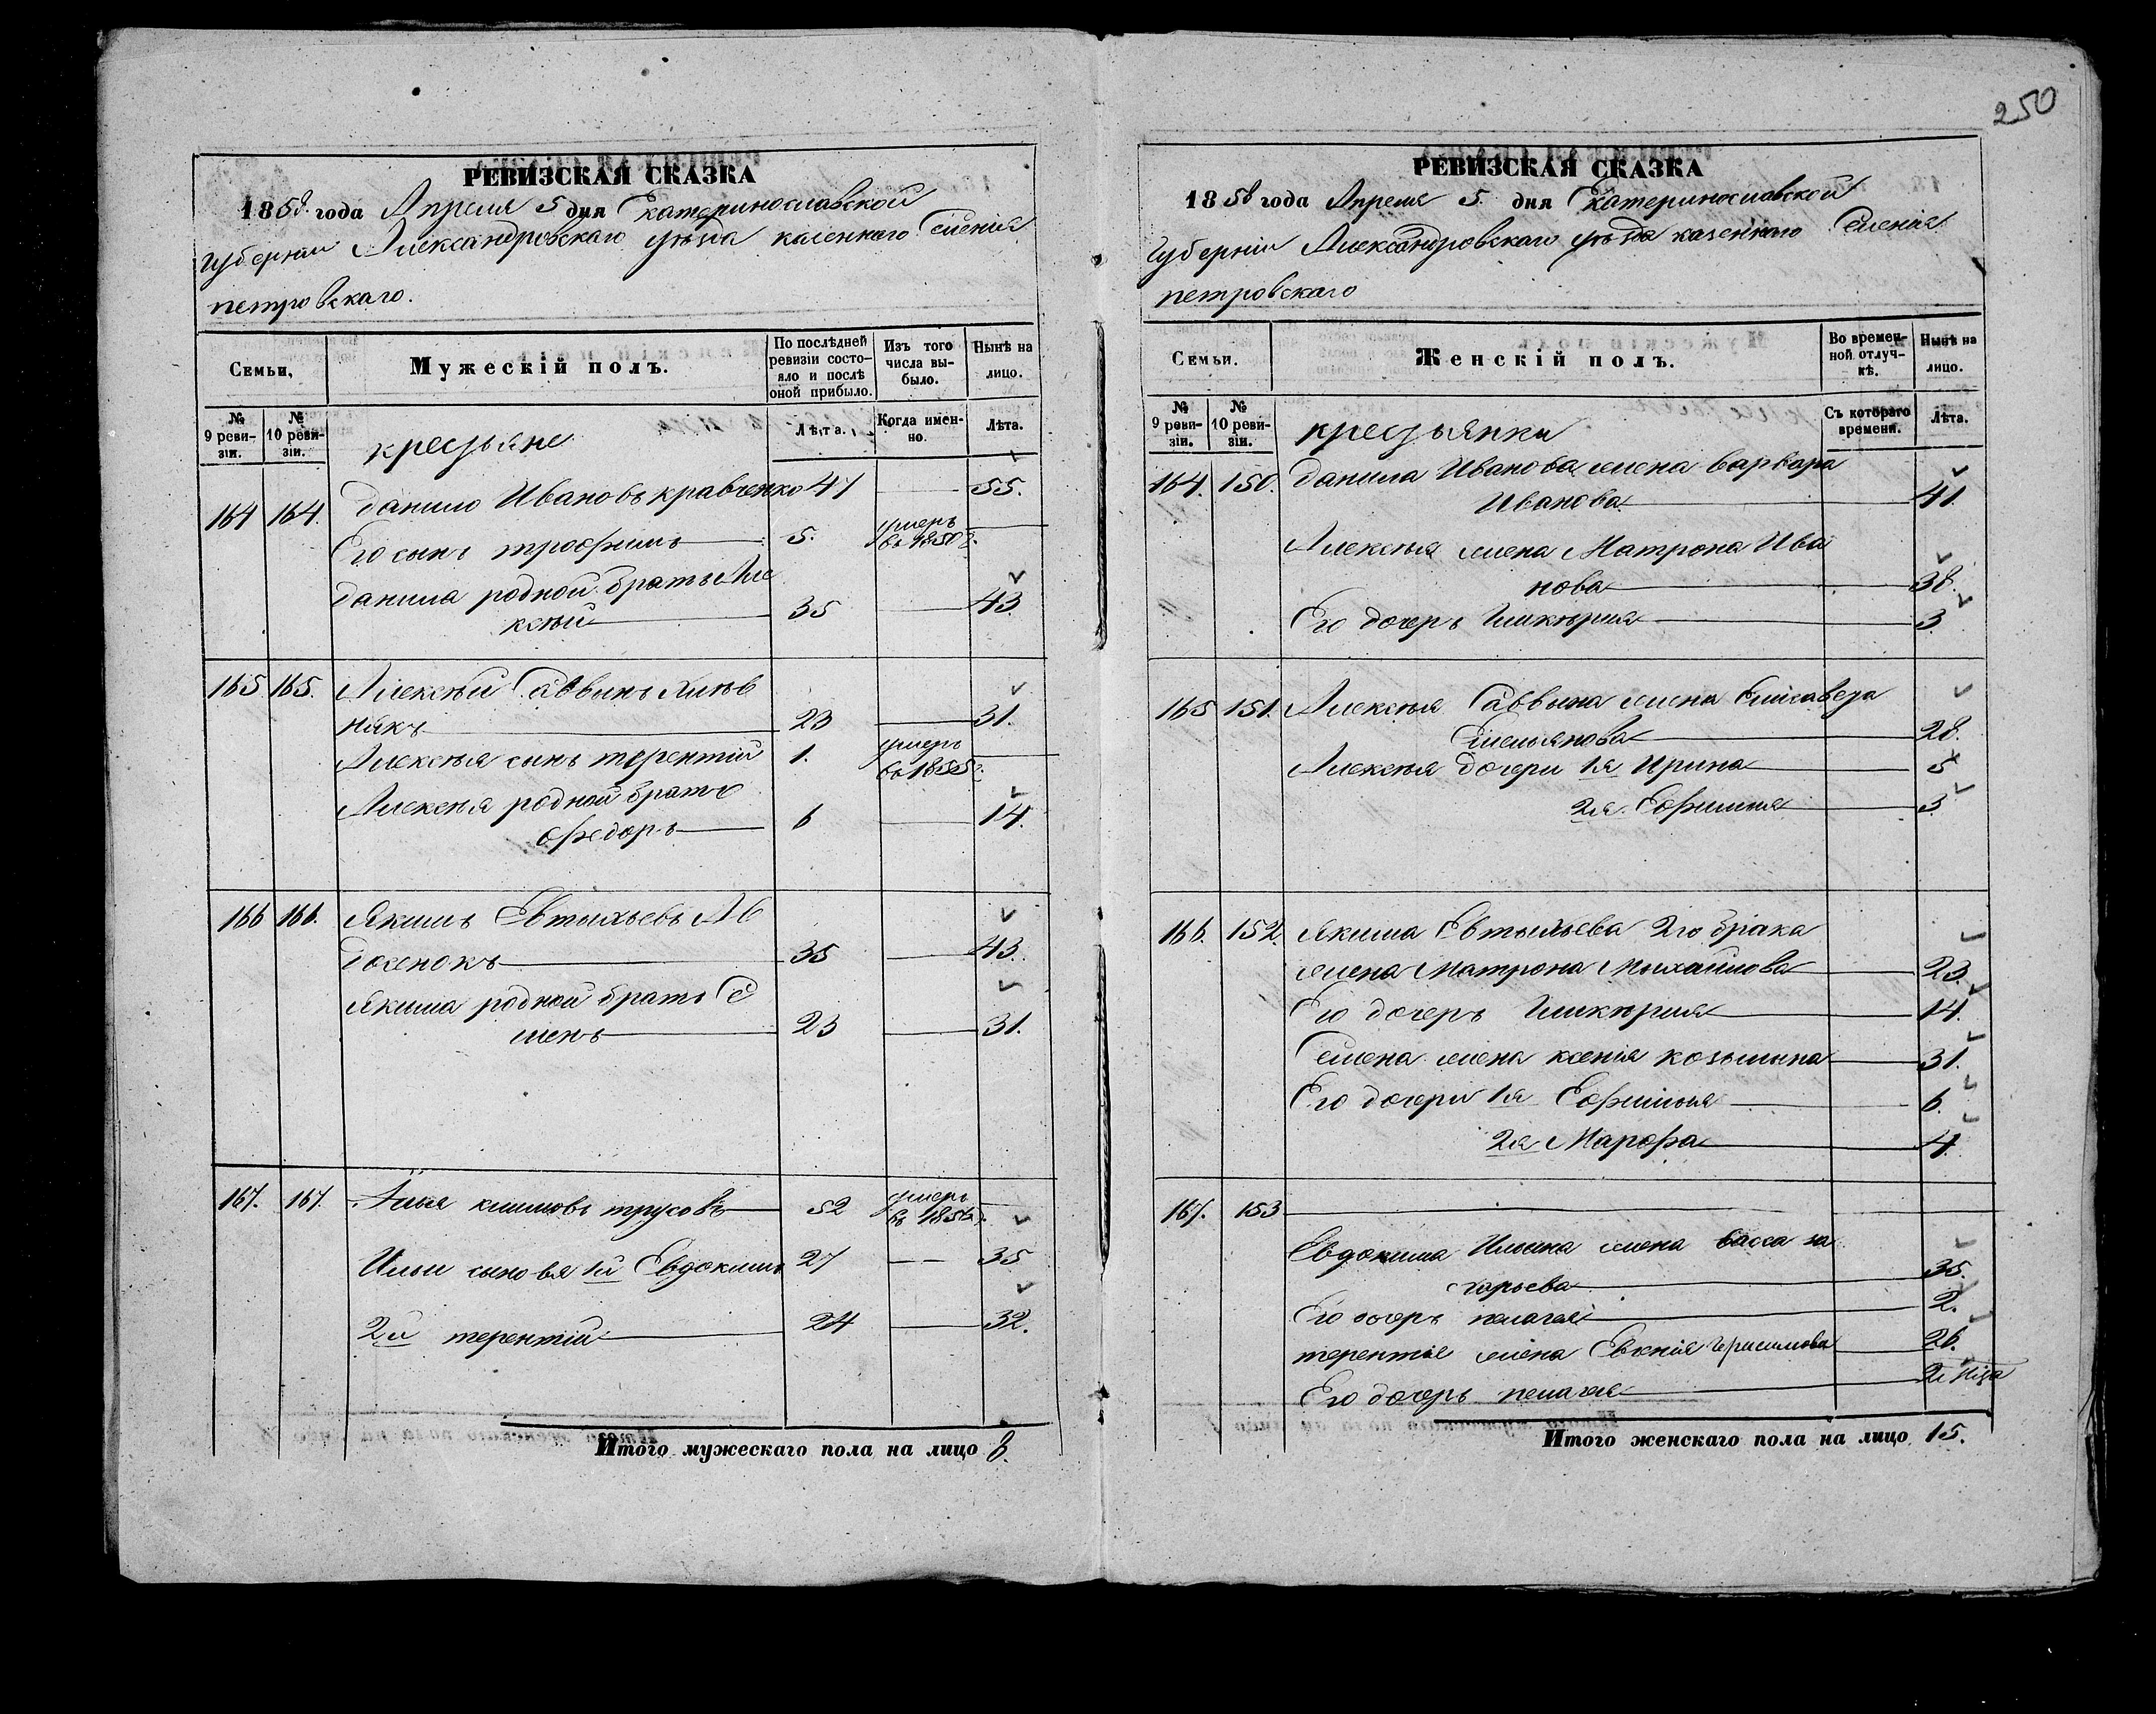 250
РЕВИЗСКАЯ СКАЗКА
1858 года Апреля 5 дня Екатеринославской
Губерніи Александровскаго уѣзда казеннаго Селенія
петровскаго.
Семьи,
Мужескій полъ.
По послѣдней ревизіи состояло и послѣ оной прибыло.
Изъ того числа выбыло.
Нынѣ на лицо.
№ 9 ревизіи.
№ 10 ревизіи.
крестьяне
Лѣта.
Когда именно.
Лѣта.
164 164. данило Ивановъ кравченко 47 55.
Его сынъ трофимъ 5. умеръ въ 1850 г.
данила родной братъ Але
ксѣй 35 43.
165 165. Алексѣй Саввинъ Хижъ
някъ 23 31.
Алексѣя сынъ терентій 1. умеръ въ 1855 г.
Алексѣя родной братъ
федоръ 6 14.
166 166. Якимъ Евтыхьевъ Ав
дѣенокъ 35 43.
Якима родной братъ Се
менъ 23 31.
167. 167. Илья климовъ трусовъ 52 умеръ въ 1856 г.
Ильи сыновя 1й Евдокимъ 27 35
2й терентій 24 32.
Итого мужескаго пола на лицо 8.
РЕВИЗСКАЯ СКАЗКА
1858 года Апреля 5. дня Екатеринославской
Губерніи Александровскаго уѣзда казеннаго Селенія
петровскаго
Семьи.
Женскій полъ.
Во временной отлучкѣ.
Нынѣ на лицо.
№ 9 ревизіи.
№ 10 ревизіи.
крестьянки
Съ котораго времени.
Лѣта.
164. 150. данила Иванова жена варвара
Иванова 41.
Алексѣя жена Матрона Ива
нова 38.
Его дочеръ Гликѣрия 3
165 151. Алексѣя Саввина жена Елисавета
Емельянова 28.
Алексѣя дочери 1я Ирина 5
2я Ефимия 3
166. 152. Якима Евтыхьева 2го брака
жена Матрона Михайлова 23.
Его дочеръ Гликѣрия 14.
Семена жена ксения козьмина 31.
Его дочери 1я Ефимья 6.
2я Марфа 4
167. 153
Евдокима Ильина жена васса за
харьева 35.
Его дочеръ пелагея 2.
терентия жена Евгения Герасимова 26.
Его дочеръ пелагея
Итого женскаго пола на лицо 15.